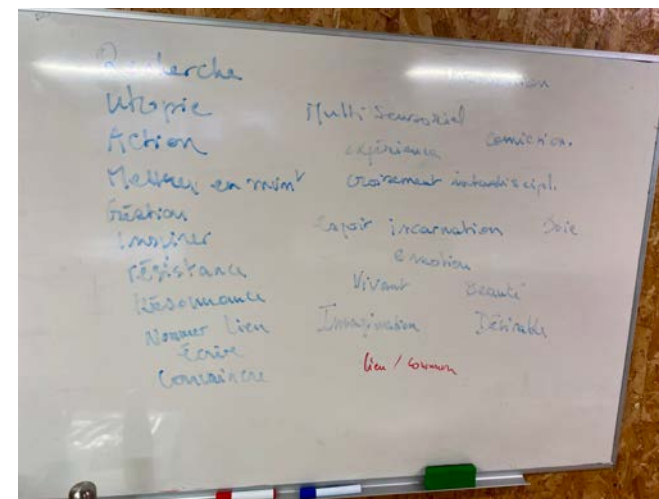 Recherche
Utopie
Action
Mettre en mvmt
Création
Inspirer
résistance
Résonnance
Nommer lien
Écrire
Convaincre
Multi Sensoriel
expérience conviction.
croisement interdiscipl.
Espoir incarnation Joie
émotion
Vivant Beauté
Imagination Désirable
lien / commun